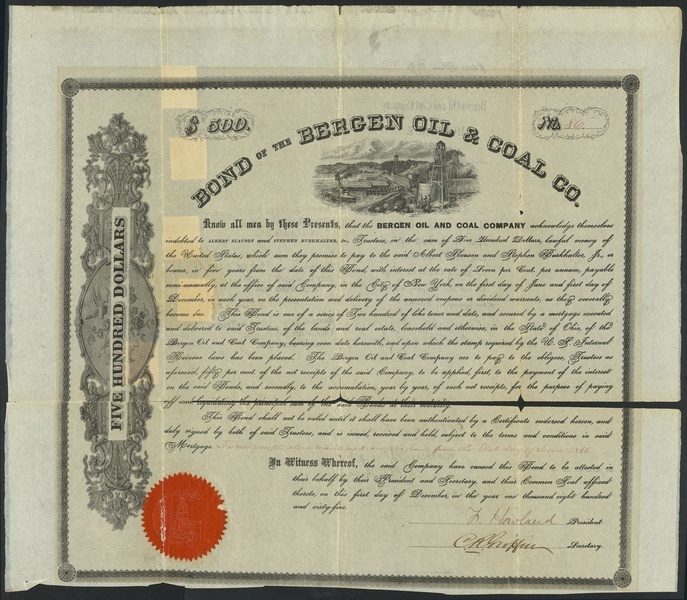 $ 500.
No. 86.
BOND OF THE BERGEN OIL & COAL CO.
FIVE HUNDRED DOLLARS
Know all men by these Presents, that the BERGEN OIL AND COAL COMPANY acknowledge themselves
indebted to ALBERT SLAUSON and STEPHEN BURKHALTER, Jr., Trustees, in the sum of Five Hundred Dollars, lawful money of
the United States, which sum they promise to pay to the said Albert Slauson and Stephen Burkhalter, Jr., or
bearer, in five years from the date of this Bond, with interest at the rate of Seven per Cent. per annum, payable
semi-annually, at the office of said Company, in the City of New York, on the first day of June and first day of
December, in each year, on the presentation and delivery of the annexed coupons or dividend warrants, as they severally
become due. This Bond is one of a series of Two hundred of like tenor and date, and secured by a mortgage executed
and delivered to said Trustees, of the lands and real estate, leasehold and otherwise, in the State of Ohio, of the
Bergen Oil and Coal Company, bearing even date herewith, and upon which the stamp required by the U. S. Internal
Revenue laws has been placed. The Bergen Oil and Coal Company are to pay to the obligees, Trustees as
aforesaid, fifty per cent. of the net receipts of the said Company, to be applied, first, to the payment of the interest
on the said Bonds, and secondly, to the accumulation, year by year, of such net receipts, for the purpose of paying
off and liquidating the principal sum of the said Bonds at their maturity.
This Bond shall not be valid until it shall have been authenticated by a Certificate endorsed hereon, and
duly signed by both of said Trustees, and is issued, received and held, subject to the terms and conditions in said
Mortgage.
In Witness Whereof, the said Company have caused this Bond to be attested in
their behalf by their President and Secretary, and their Common Seal affixed
thereto, on this first day of December, in the year one thousand eight hundred
and sixty-five.
F. Howland President.
C R Griffin Secretary.